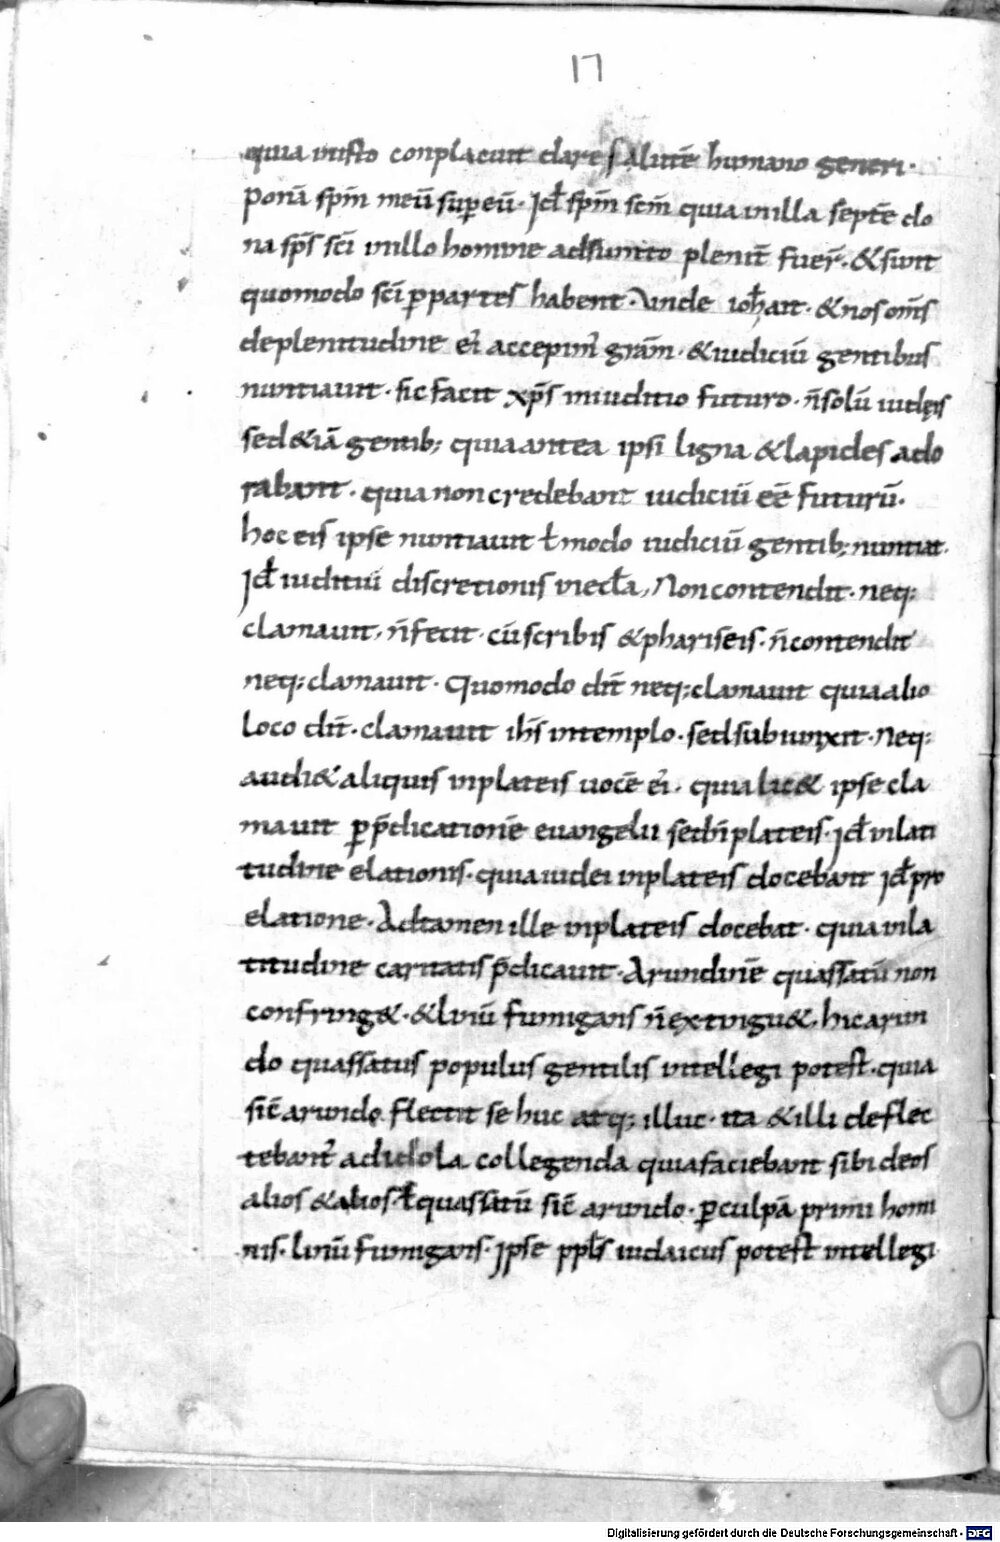 17
quia in isto conplacuit dare salutē humano generi·
Ponā sp̄m meū sup eū· Id ł sp̄m sc̄m quia in illa septē do
na sp̄s sc̄i in illo homine adsunto plenit̄ fuer̄· & sunt
quomodo sc̄i p partes habent· Unde ioħ ait· & nos om̄s
de plenitudine ei' accepim' gr̄am· & iudiciū gentibus
nuntiauit· sic facit xp̄s in iuditio futuro· n̄ solū iudęis
sed & iā gentib; quia antea ipsi ligna & lapides ado
rabant· quia non credebant iudiciū eē futurū·
hoc eis ipse nuntiauit ł modo iudiciū gentib; nuntiat·
Id ł iuditiū discretionis
Non contendit· neq;
clamauit· n̄ fecit· cū scribis & phariseis· n̄ contendit
neq; clamauit· Quomodo dit̄ neq; clamauit quia alio
loco dit̄· clamauit ih̄s in templo· sed subiunxit· Neq;
audi& aliquis in plateis uocē ei'· quia lic& ipse cla
mauit p p̄dicationē euangelii sed n̄ in plateis· Id ł in lati
tudine elationis· quia iudei in plateis docebant Id ł pro
elatione· Ad tamen ille in plateis docebat· quia in la
titudine caritatis p̄dicauit· Arundinē quassatū non
confring&· & linū fumigans n̄ extingu&· hic arun
do quassatus populus gentilis intellegi potest· quia
sic̄ arundo flectit se huc atq; illuc· ita & illi deflec
tebant' ad idola collegenda quia faciebant sibi deos
alios & alios· ł quassatū sic̄ arundo· p culpā primi homi
nis· linū fumigans· Ipse ppłs iudaicus potest intellegi
Digitalisierung gefördert durch die Deutsche Forschungsgemeinschaft - DFG